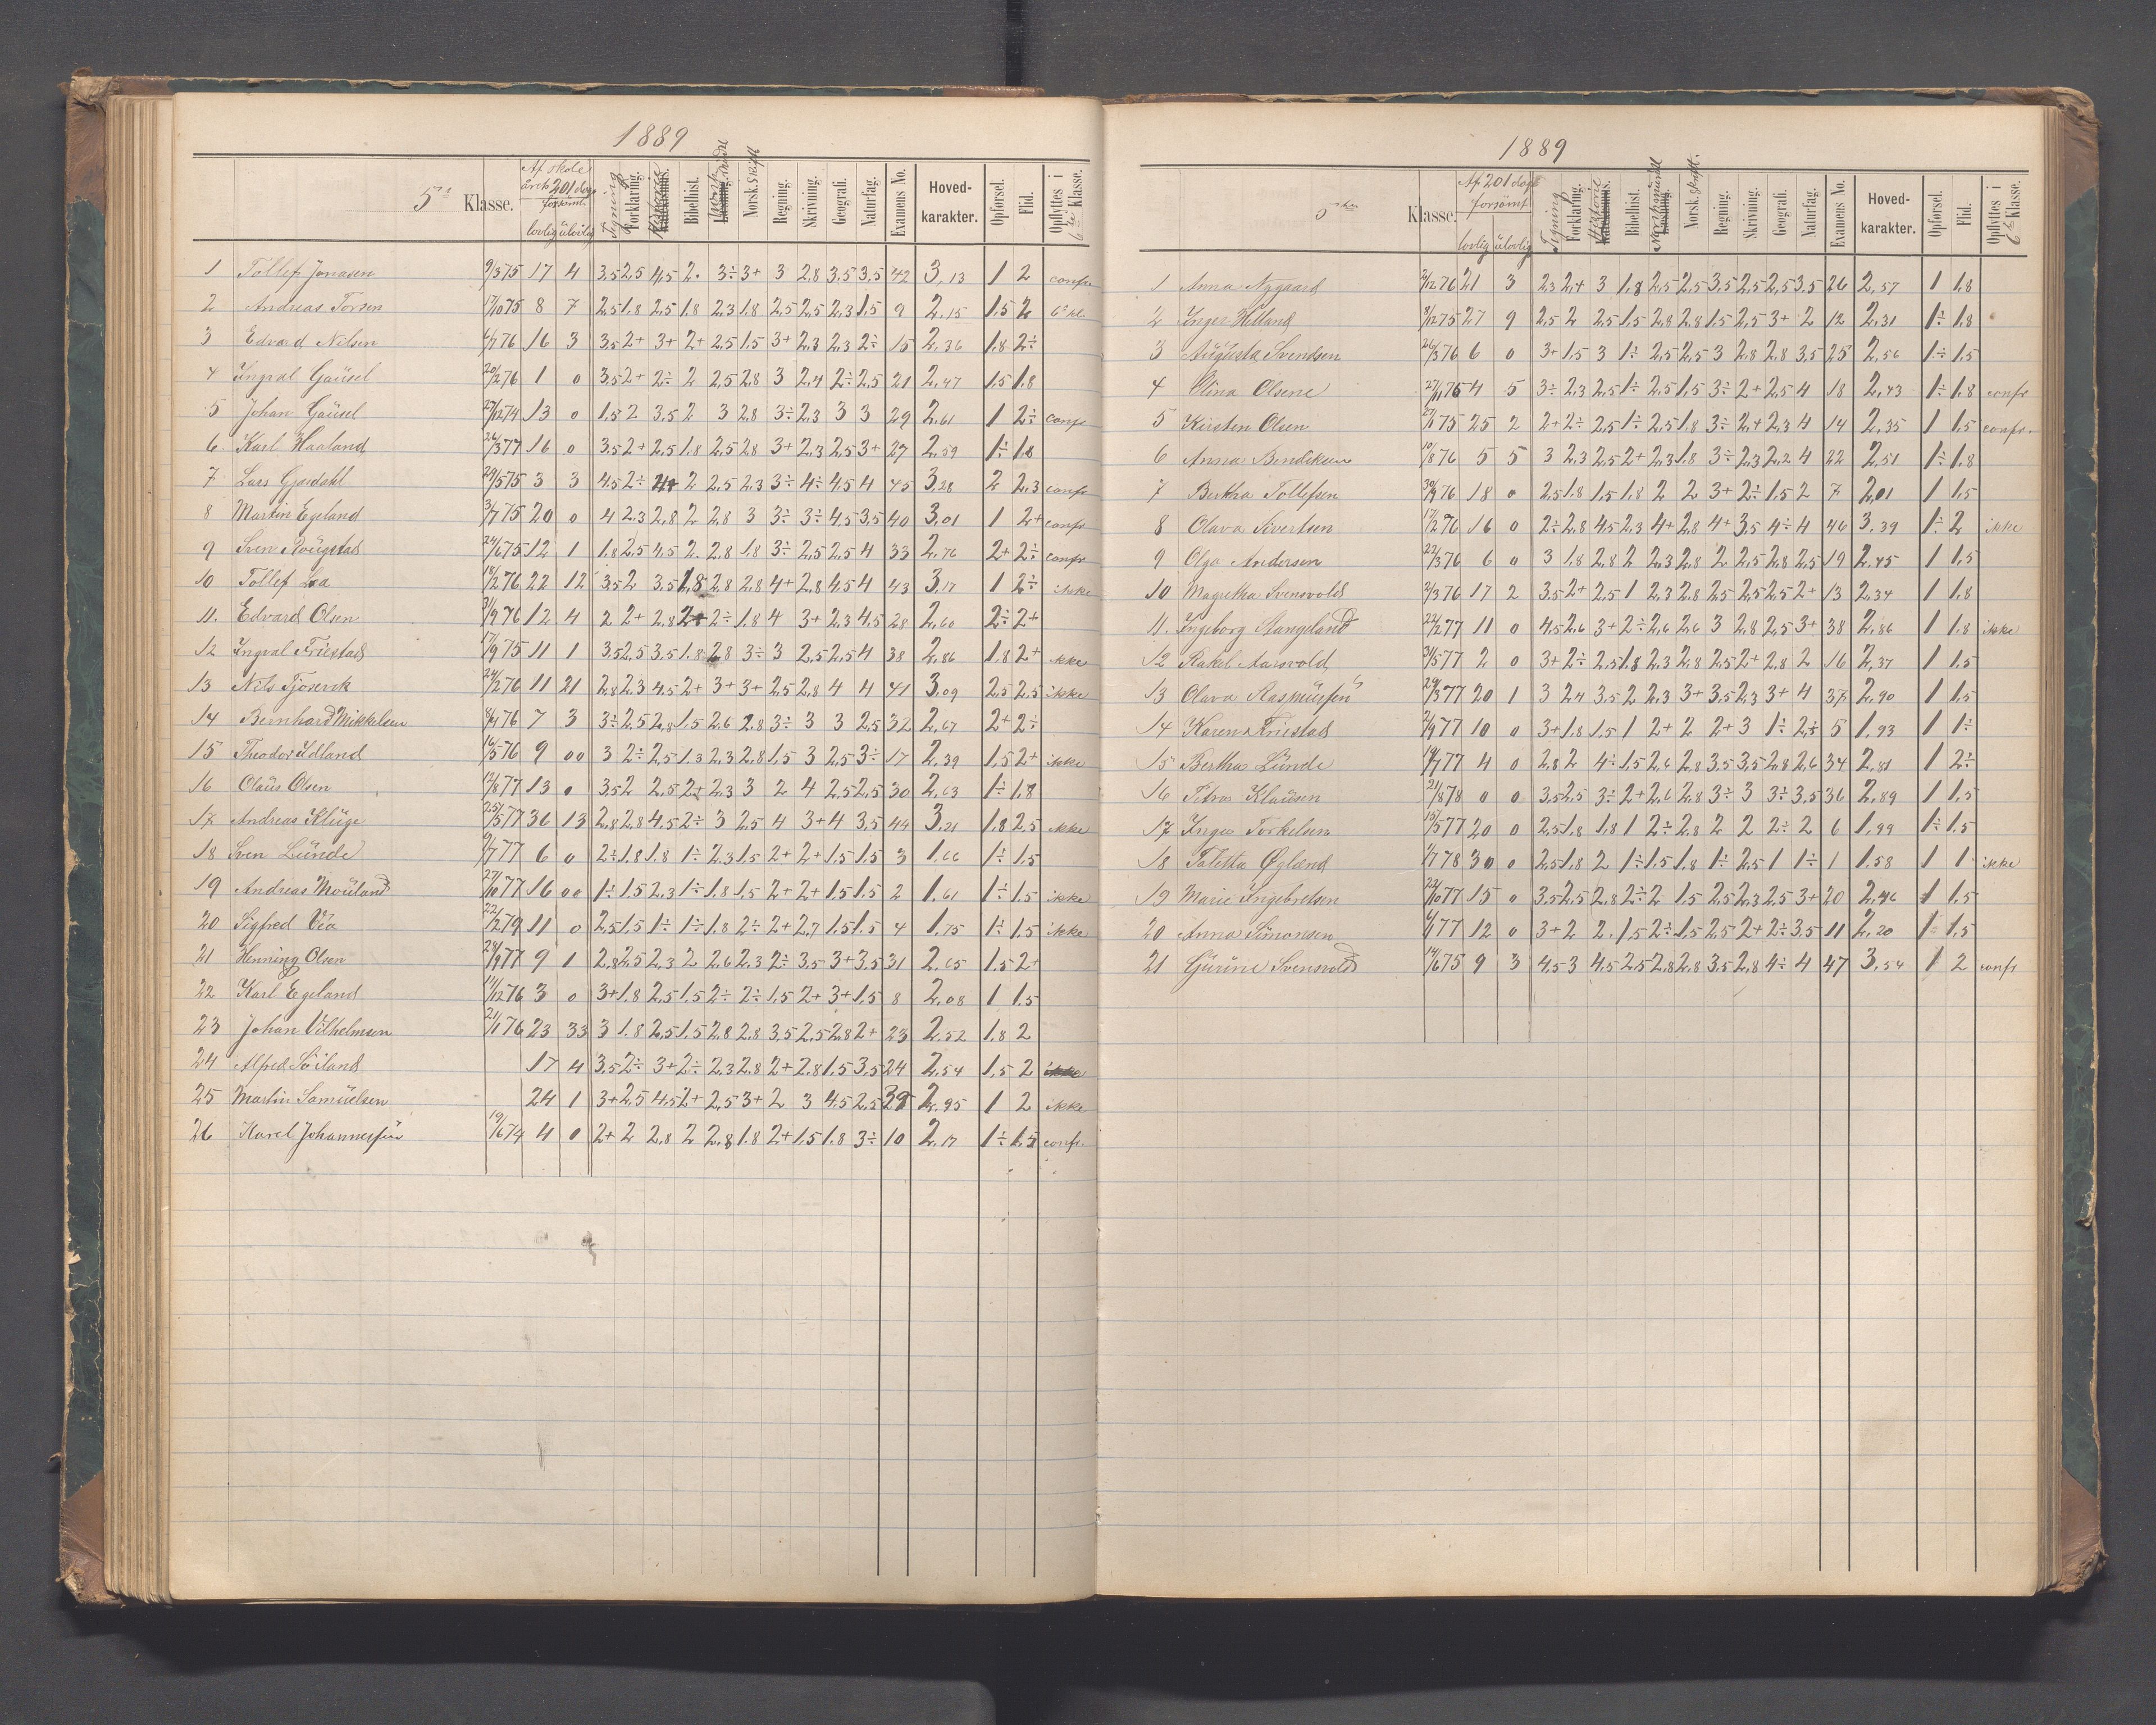 1889
5te Klasse. Af skole årets 201 dage forsømt lovlig ulovlig Tegning Forklaring. Historie Katekismus. Bibelhist. Norsk mundtl Norsk. Skriftl Regning. Skrivning. Geografi. Naturfag. Examens No. Hoved-karakter. Opførsel. Flid. Opflyttes i 6te Klasse.
1 Tollef Jonasen 9/3 75 17 4 3,5 2,5 4,5 2. 3÷ 3+ 3 2,8 3,5 3,5 42 3,13 1 2 confr
2 Andreas Torsen 17/10 75 8 7 2,5 1,8 2,5 1,8 2,3 1,8 2,5 2,5 2,3 1,5 9 2,15 1,5 2 6te kl.
3 Edvard Nilsen 4/1 76 16 3 3,5 2+ 3+ 2+ 2,5 1,5 3+ 2,3 2,3 2÷ 15 2,36 1,8 2÷
4 Ingval Gausel 20/2 76 1 0 3,5 2+ 2÷ 2 2,5 2,8 3 2,4 2÷ 2,5 21 2,47 1,5 1,8
5 Johan Gausel 27/12 74 13 0 1,5 2 3,5 2 3 2,8 3÷ 2,3 3 3 29 2,61 1 2÷ confr
6 Karl Haaland 26/3 77 16 0 3,5 2+ 2,5 1,8 2,5 2,8 3+ 2,3 2,5 3+ 27 2,59 1÷ 1,8
7 Lars Gjosdahl 29/5 75 3 3 4,5 2÷ 4+ 2 2,5 2,3 3÷ 4÷ 4,5 4 45 3,28 2 2,3 confr
8 Martin Egeland 3/7 75 20 0 4 2,3 2,8 2 2,8 3 3÷ 3÷ 4,5 3,5 40 3,01 1 2+ confr
9 Sven Rougstad 24/6 75 12 1 1,8 2,5 4,5 2. 2,8 1,8 3÷ 2,5 2,5 4 33 2,76 2+ 2÷ confr
10 Tollef Lea 18/2 76 22 12 3,5 2 3,5 1,8 2,8 2,8 4+ 2,8 4,5 4 43 3,17 1 2÷ ikke
11. Edvard Olsen 31/9 76 12 4 2 2+ 2,8 2+ 2÷ 1,8 4 3+ 2,3 4,5 28 2,60 2÷ 2+
12 Ingval Friestad 17/9 75 11 1 3,5 2,5 3,5 1,8 2,8 3÷ 3 2,5 2,5 4 38 2,86 1,8 2+ ikke
13 Nils Tjosevik 24/2 76 11 21 2,8 2,3 4,5 2+ 3+ 3+ 2,5 2,8 4 4 41 3,09 2,5 2,5 ikke
14 Bernhard Mikkelsen 8/4 76 7 3 3÷ 2,5 2,8 1,5 2,6 2,8 3÷ 3 3 2,5 32 2,67 2+ 2÷
15 Theodor Idland 16/5 76 9 00 3 2÷ 2,5 1,3 2,3 2,8 1,5 3 2,5 3÷ 17 2,39 1,5 2+ ikke
16 Olaus Olsen 12/8 77 13 0 3,5 2 2,5 2+ 2,3 3 2 4 2,5 2,5 30 2,63 1÷ 1,8
17 Andreas Kluge 25/5 77 36 13 2,8 2,8 4,5 2÷ 3 2,5 4 3+ 4 3,5 44 3,21 1,8 2,5 ikke
18 Sven Lunde 9/7 77 6 0 2÷ 1,8 1,8 1÷ 2,3 1,5 2+ 2+ 1,5 1,5 3 1,66 1÷ 1,5
19 Andreas Mouland 27/10 77 16 00 1÷ 1,5 2,3 1÷ 1,8 1,5 2+ 2+ 1,5 1,5 2 1,61 1÷ 1,5 ikke
20 Sigfred Via 22/12 79 11 0 2,5 1,5 1÷ 1÷ 1,8 2÷ 2+ 2,7 1,5 1,5 4 1,75 1÷ 1,5 ikke
21 Henning Olsen 28/9 77 9 1 2,8 2,5 2,3 2 2,6 2,3 2÷ 3,5 3+ 3,5 31 2,65 1,5 2+
22 Karl Egeland 11/12 76 3 0 3+ 1,8 2,5 1,5 2÷ 2÷ 1,5 2+ 3+ 1,5 8 2,08 1 1,5
23 Johan Vilhelmsen 21/1 76 23 33 3 1,8 2,5 1,5 2,8 2,8 3,5 2,5 2,8 2+ 23 2,52 1,8 2
24 Alfred Soiland 17 4 3,5 2÷ 3+ 2÷ 2,3 2,8 2+ 2,8 1,5 3,5 24 2,54 1,5 2 ikke
25 Martin Samuelsen 24 1 3+ 2,5 4,5 2+ 2,5 3+ 2 3 4,5 2,5 39 2,95 1 2 ikke
26 Karel Johannessen 19/6 74 4 0 2+ 2 2,8 2 2,8 1,8 2+ 1,5 1,8 3÷ 10 2,17 1÷ 1,5 confr.
1889
5te Klasse. Af 201 dage forsømt lovlig ulovlig Tegning Forklaring. Historie Katekismus. Bibelhist. Norsk mundtl Norsk. skriftl. Regning. Skrivning. Geografi. Naturfag. Examens No. Hoved-karakter. Opførsel. Flid. Opflyttes i 6te Klasse.
1 Anna Nygaard 2/12 76 21 3 2,3 2,+ 3 1,8 2,5 2,5 3,5 2,5 2,5 3,5 26 2,57 1 1,8
2 Inger Helland 8/12 75 27 9 2,5 2 2,5 1,5 2,8 2,8 1,5 2,5 3+ 2 12 2,31 1÷ 1,8
3 Augusta Svendsen 26/3 76 6 0 3+ 1,5 3 1÷ 2,5 2,5 3 2,8 2,8 3,5 25 2,56 1÷ 1,5
4 Elina Olsene 27/1 76 4 5 3÷ 2,3 2,5 1÷ 2,5 1,5 3÷ 2+ 2,5 4 18 2,43 1÷ 1,8 confr
5 Kirsten Olsen 27/1 75 25 2 2+ 2÷ 2,5 1÷ 2,5 1,8 3÷ 2,+ 2,3 4 14 2,35 1 1,5 confr.
6 Anna Bendiksen 10/8 76 5 5 3 2,3 2,5 2+ 2,3 1,8 3÷ 2,3 2,2 4 22 2,51 1÷ 1,8
7 Bertha Tollefsen 30/9 76 18 0 2,5 1,8 1,5 1,8 2 2 3+ 2÷ 1,5 2 7 2,01 1 1,5
8 Olava Sivertsen 17/2 76 16 0 2÷ 2,8 4,5 2,3 4+ 2,8 4+ 3,5 4÷ 4 46 3,39 1÷ 2 ikke
9 Olga Andersen 22/3 76 6 0 3 1,8 2,8 2 2,3 2,8 2 2,5 2,8 2,5 19 2,45 1 1,5
10 Magretha Svensvold 2/3 76 17 2 3,5 2+ 2,5 1 2,3 2,8 2,5 2,5 2,5 2+ 13 2,34 1 1,8
11. Ingeborg Stangeland 22/2 77 11 0 4,5 2,6 3+ 2÷ 2,6 2,6 3 2,8 2,5 3+ 38 2,86 1 1,8 ikke
12 Rakel Aarsvold 31/5 77 2 0 3+ 2÷ 2,5 1,8 2,3 2,8 2,5 2+ 2,8 2 16 2,37 1 1,5
13 Olava Rasmussen 29/3 77 20 1 3 2,4 3,5 2 2,3 3+ 3,5 2,3 3+ 4 37 2,90 1 1,5
14 Karen Friestad 2/9 77 10 0 3+ 1,8 1,5 1 2+ 2 2+ 3 1÷ 2,5 5 1,93 1 1÷
15 Bertha Lunde 14/7 77 4 0 2,8 2 4÷ 1,5 2,6 2,8 3,5 3,5 2,8 2,6 34 2,81 1 2÷
16 Petra Klausen 21/8 78 0 0 3,5 2,5 3÷ 2+ 2,6 2,8 3÷ 3 3÷ 3,5 36 2,89 1 1,5
17 Inga Torkelsen 15/5 77 20 0 2,5 1,8 1,8 1 2÷ 2,8 2 2 2÷ 2 6 1,99 1÷ 1,5
18 Taletta Øgland 1/7 78 30 0 2,5 1,8 2 1÷ 1,5 1,8 1÷ 2,5 1 1÷ 1 1,58 1 1 ikke
19 Marie Ingebretsen 22/10 77 15 0 3,5 2,5 2,8 2÷ 2 1,5 2,5 2,3 2,5 3+ 20 2,46 1 1,5
20 Anna Simonsen 4/1 77 12 0 3+ 2 2. 1,5 2÷ 1,5 2,5 2+ 2÷ 3,5 11 2,20 1÷ 1,5
21 Gurine Svensvold 14/6 75 9 3 4,5 3 4,5 2,5 2,8 2,8 3,5 2,8 4÷ 4 47 3,54 1 2 confr